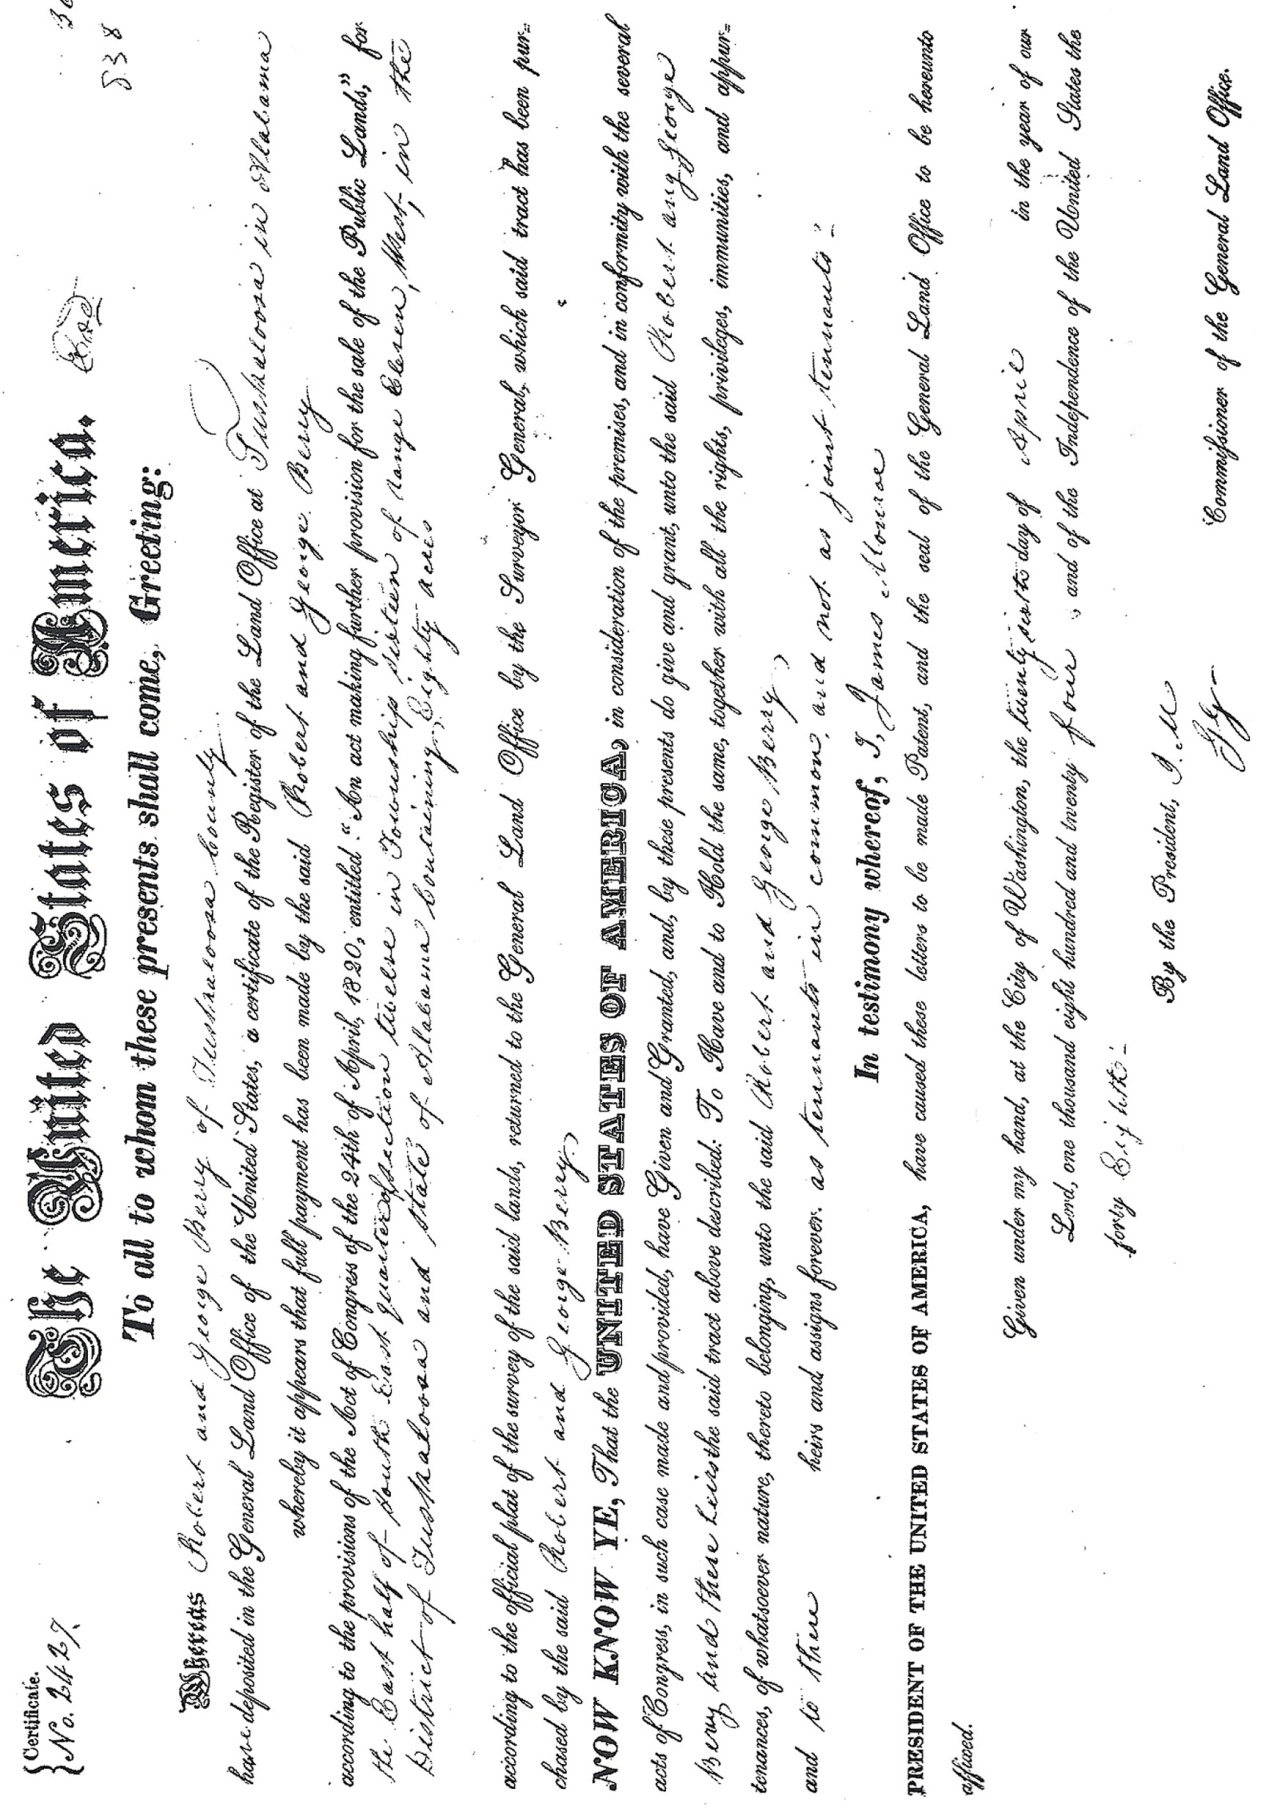 838
Certificate.
No. 2427.
The United States of America.
To all to whom these presents shall come, Greeting:
Whereas Robert and George Berry of Tuskaloosa County
have deposited in the General Land Office of the United States, a certificate of the Register of the Land Office at Tuskaloosa in Alabama
whereby it appears that full payment has been made by the said Robert and George Berry
according to the provisions of the Act of Congress of the 24th of April, 1820, entitled "An act making further provision for the sale of the Public Lands," for
the East half of South East quarter of Section twelve in Township sixteen of Range Eleven, West, in the
District of Tuskaloosa and State of Alabama Containing Eighty acres
according to the official plat of the survey of the said lands, returned to the General Land Office by the Surveyor General, which said tract has been pur=
chased by the said Robert and George Berry
NOW KNOW YE, That the UNITED STATES OF AMERICA, in consideration of the premises, and in conformity with the several
acts of Congress, in such case made and provided, have Given and Granted, and, by these presents do give and grant, unto the said Robert and George
Berry and there heirs the said tract above described: To Have and to Hold the same, together with all the rights, privileges, immunities, and appur=
tenances, of whatsoever nature, thereto belonging, unto the said Robert and George Berry,
and to there heirs and assigns forever. as tenants in common, and not as joint tenants-
In testimony whereof, I, James Monroe
PRESIDENT OF THE UNITED STATES OF AMERICA, have caused these letters to be made Patent, and the seal of the General Land Office to be hereunto
affixed.
Given under my hand, at the City of Washington, the twenty sixth day of April in the year of our
Lord, one thousand eight hundred and twenty four, and of the Independence of the United States the
forty Eighth-
By the President, J. M
Commissioner of the General Land Office.